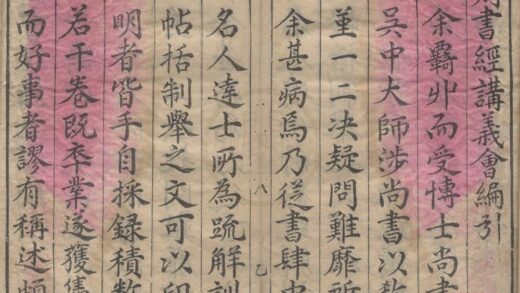 書經講義會編引
余覊丱而受博士尚書
吳中大師涉尚書以
堇一二决疑問難靡所
余甚病焉乃從書肆中
八
名人達士所為疏解訓
帖括制舉之文可以
明者皆手自採録積數
若干卷既卒業遂獲
而好事者謬有稱述頗